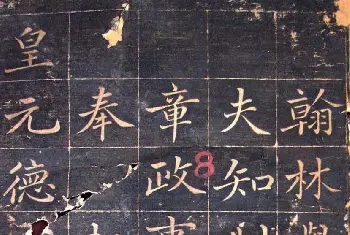 翰林
夫知
章政
奉
皇元德
8